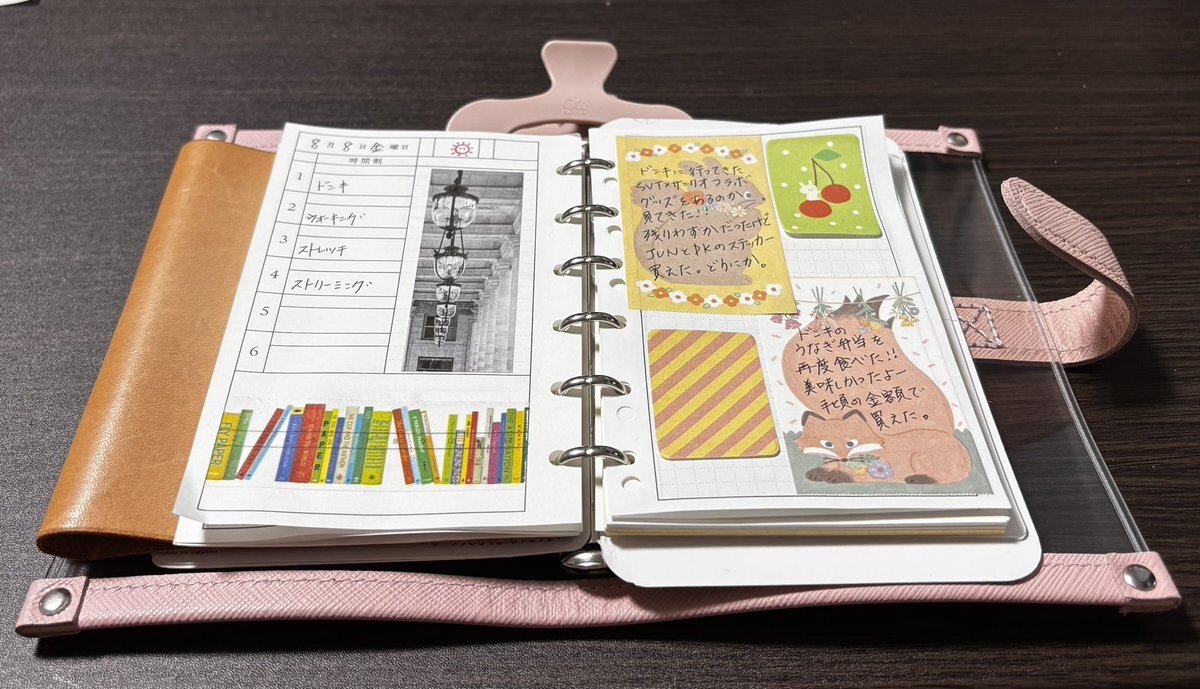 8月8日金曜日
時間割
1
ドンキ
2
ウォーキング
3
ストレッチ
4
ストリーミング
5
6
ドンキに行ってきた
SVT×サンリオコラボ
グッズをあるのか
見てきた!!
残りわずかだったけど
JUNとDKのステッカー
買えた。どりにか。
ドンキの
うなぎ弁当を
再度食べた!!
美味しかったよー
手頃の金額で
買えた。